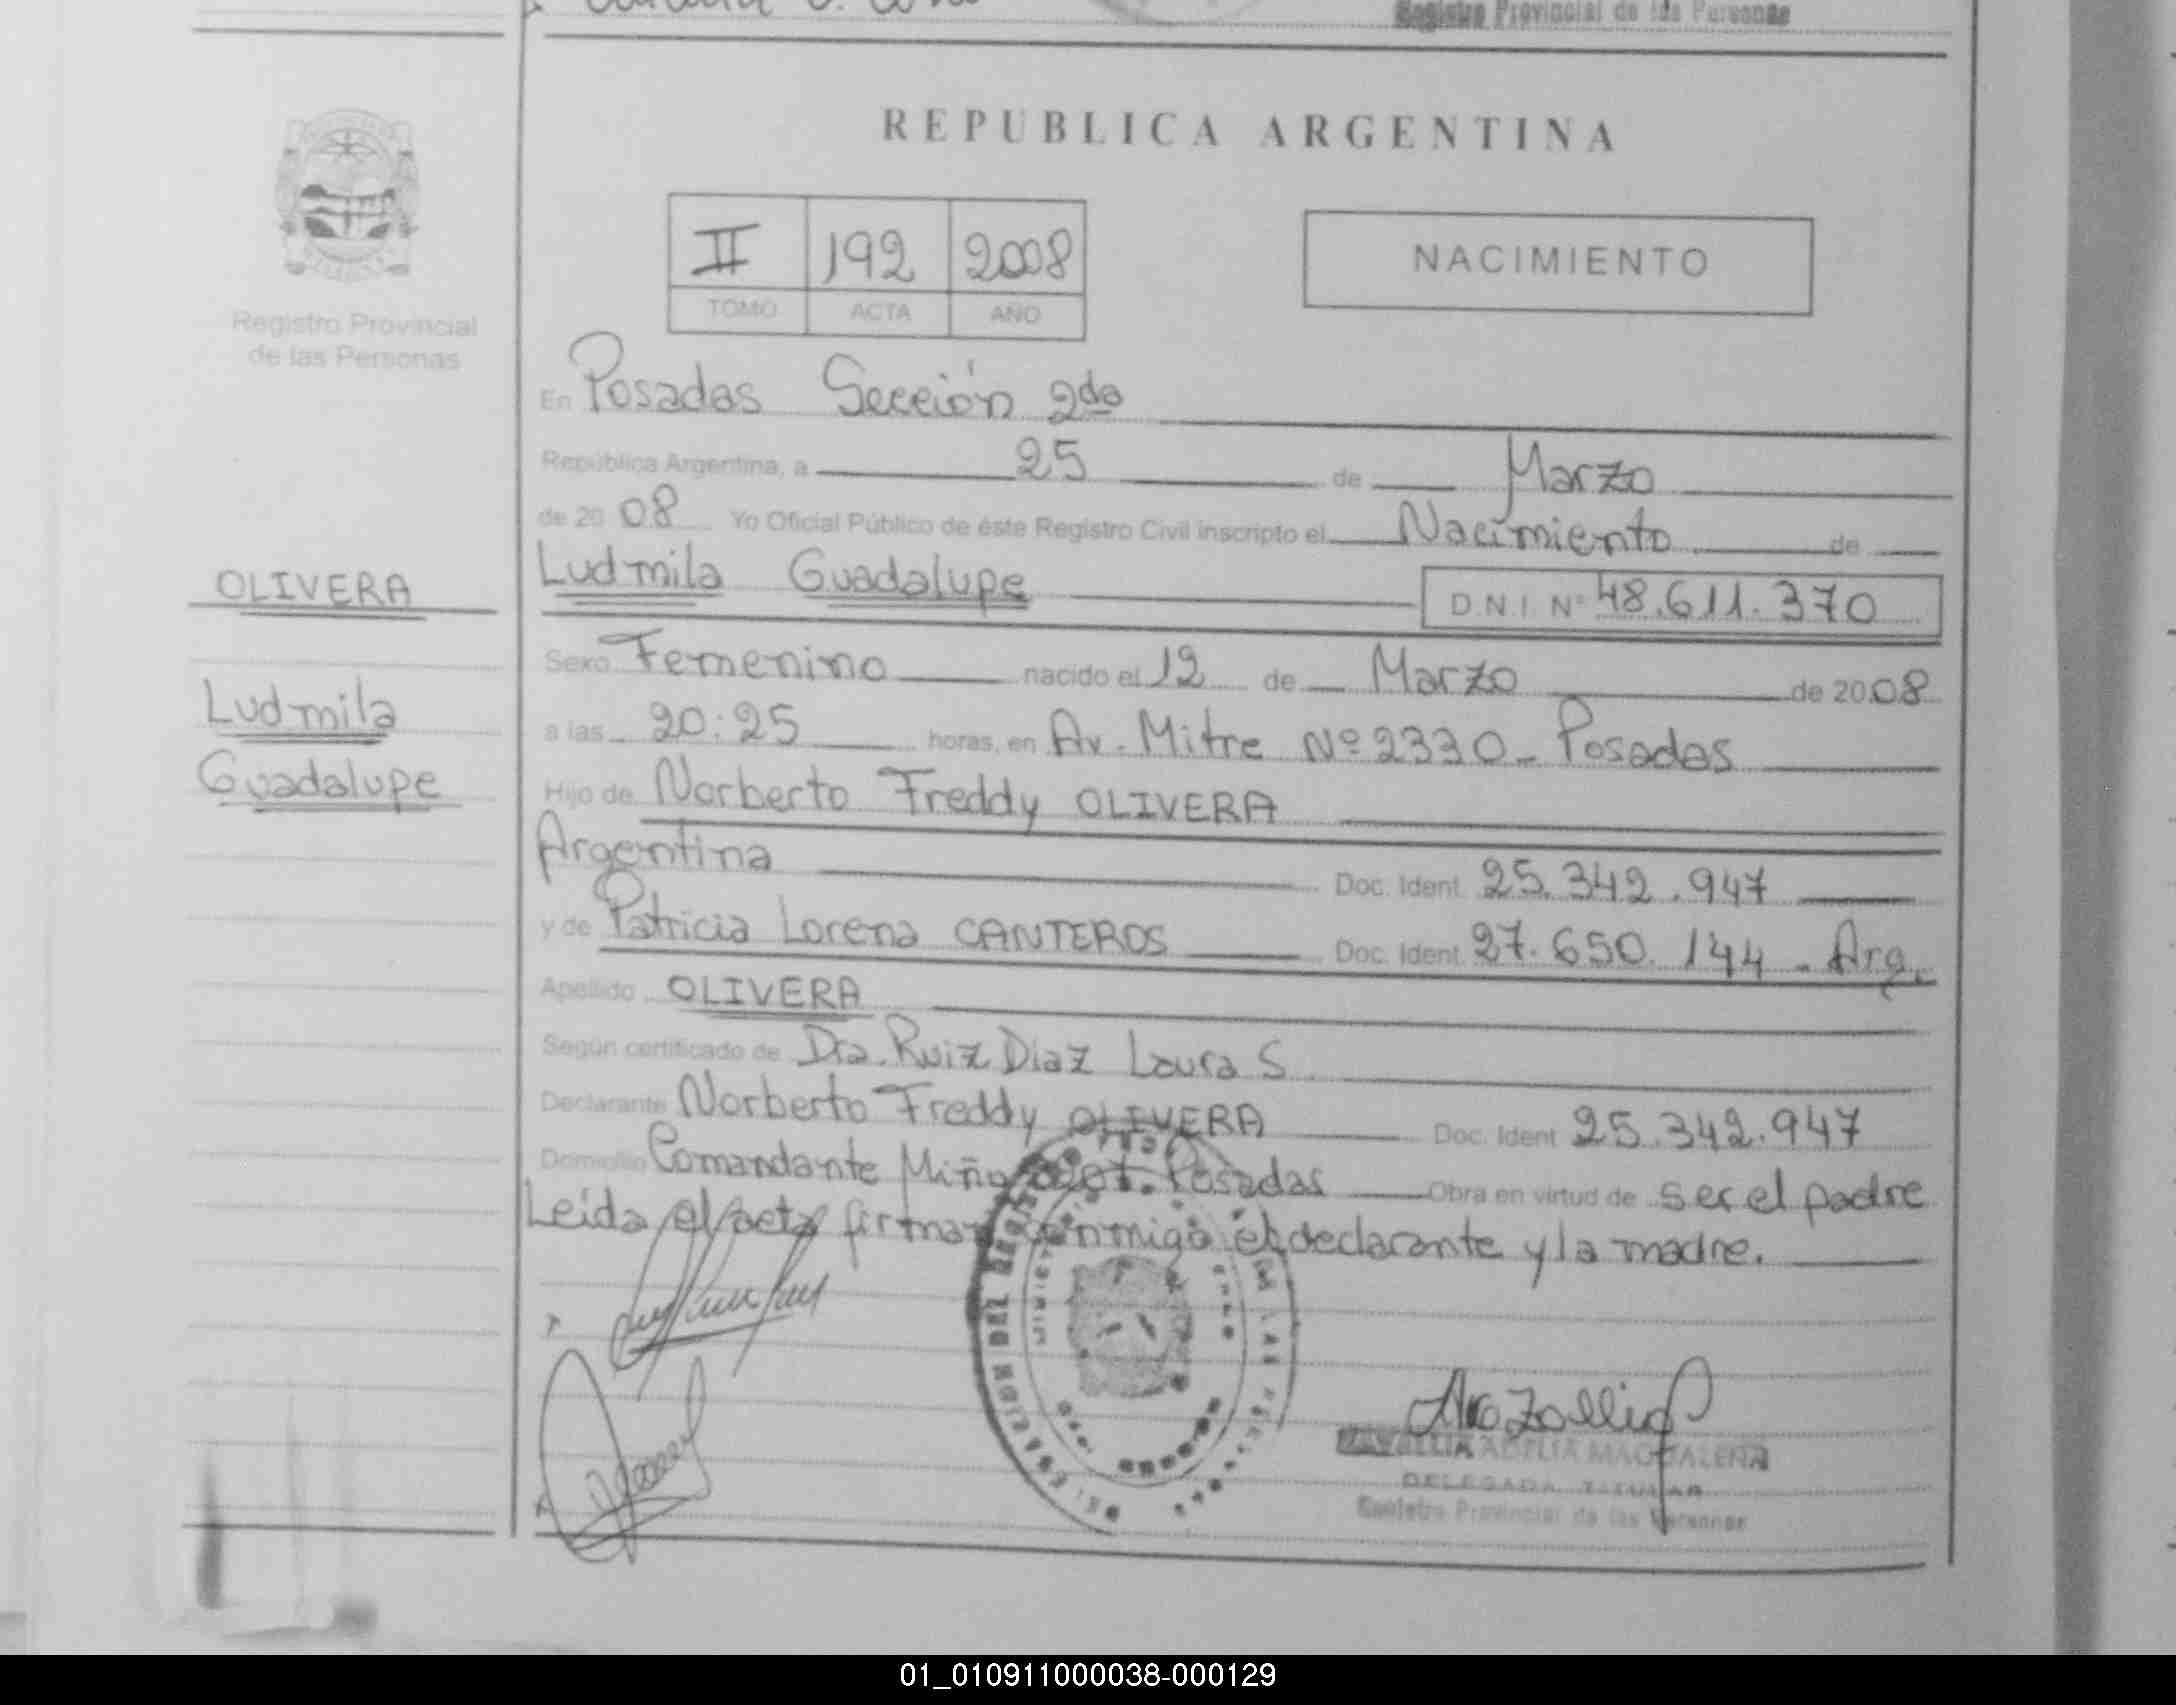 Registro Provincial de las Personas
REPUBLICA ARGENTINA
II 192 2008
TOMO ACTA AÑO
NACIMIENTO
Registro Provincial
de las Personas
En Posadas Sección 2da
República Argentina, a 25 de Marzo
de 20 08 Yo Oficial Público de éste Registro Civil inscripto el Nacimiento de
Ludmila Guadalupe D.N.I. Nº 48.611.370
OLIVERA
Ludmila
Guadalupe
Sexo Femenino nacido el 12 de Marzo de 2008
a las 20:25 horas, en Av. Mitre Nº 2330 - Posadas
Hijo de Norberto Freddy OLIVERA
Argentina Doc. Ident. 25.342.947
y de Patricia Lorena CANTEROS Doc. Ident. 27.650.144 - Arg.
Apellido OLIVERA
Según certificado de Dra. Ruiz Diaz Laura S
Declarante Norberto Freddy OLIVERA Doc. Ident 25.342.947
Domicilio Comandante Miño Posadas Obra en virtud de ser el padre
Leida el acta firman conmigo el declarante y la madre.
ADELIA MAGDALENA
DELEGADA TITULAR
Registro Provincial de las Personas
01_010911000038-000129